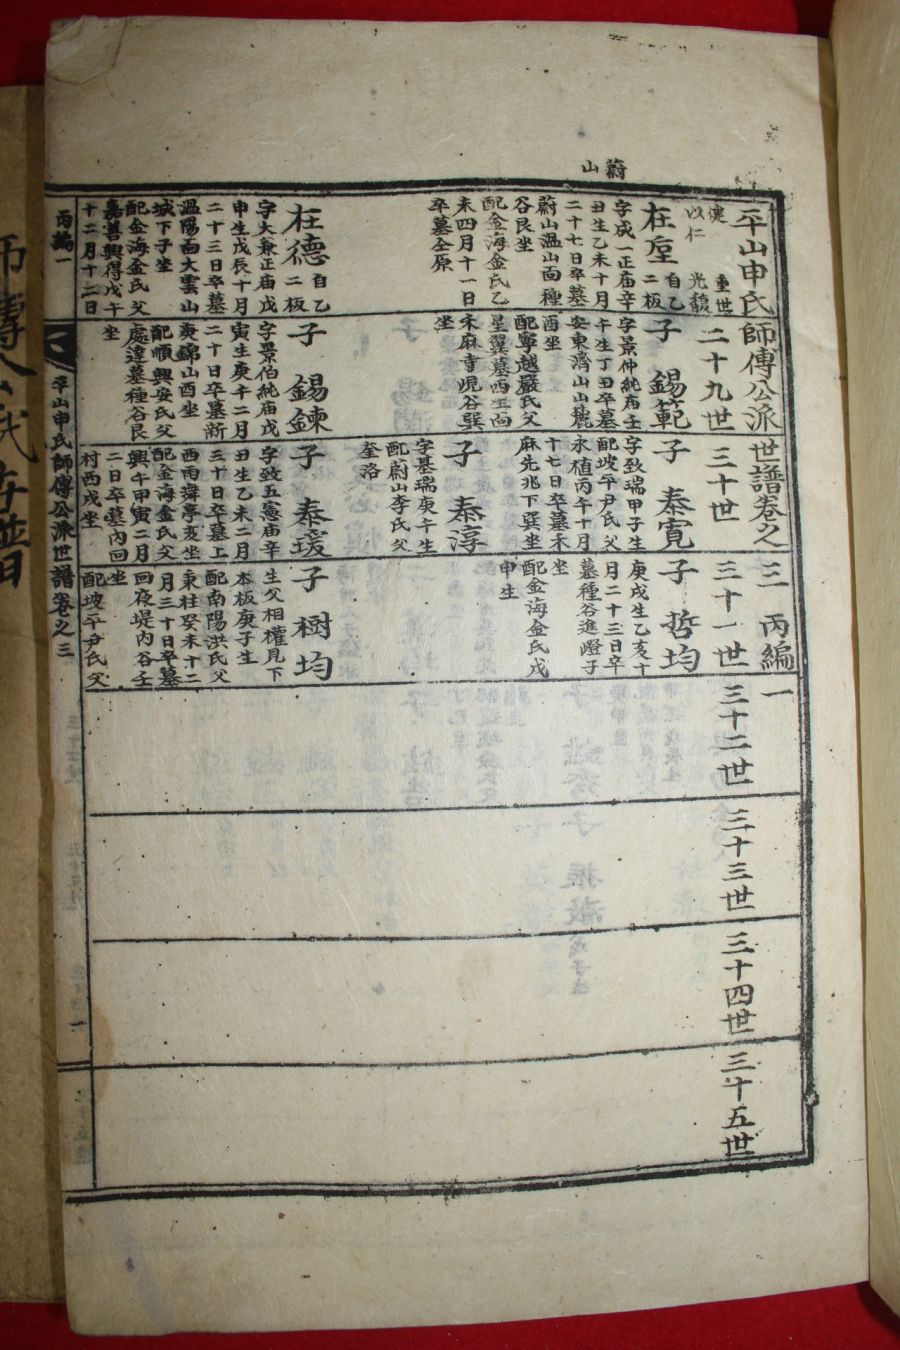 蔚山
平山申氏師傅公派世譜卷之三 丙編一
以仁 光馥
二十九世
三十世
三十一世
三十二世
三十三世
三十四世
三十五世
自乙二板
字成一正庙辛
丑生乙未十月
二十七日卒墓
蔚山溫山面種
谷艮坐
配金海金氏乙
未四月十一日
卒墓仝原
在德 自乙二板
字大兼正庙戊
申生戊辰十月
二十三日卒墓
溫陽面大雲山
城下子坐
配金海金氏父
嘉善興得戊午
十二月十二日
子 錫範
字景仲純庙壬
午生丁丑卒墓
安東濟山山麓
酉坐
配寧越嚴氏父
星翼墓西生面
未麻寺峴谷巽
坐
子 錫鍊
字景伯純庙戊
寅生庚午二月
二十日卒墓新
庚錦山酉坐
配順興安氏父
處達墓種谷艮
坐
子 泰寬
字致瑞甲子生
配坡平尹氏父
永植丙午十月
十七日卒墓未
麻先兆下巽坐
子 泰淳
字基瑞庚午生
配蔚山李氏父
奎洛
子 泰瑗
字致五憲庙辛
丑生乙未二月
三十日卒墓上
西雨舞亭亥坐
配金海金氏父
興午甲寅二月
二日卒墓內回
村酉戌坐
子 哲均
庚戌生乙亥十
月二十三日卒
墓種谷進嶝子
坐
配金海金氏戊
申生
子 樹均
生父相權見下
本板庚子生
配南陽洪氏父
秉柱癸未十二
月三十日卒墓
回夜堤內谷壬
坐
配坡平尹氏父
丙編一
平山申氏師傅公派世譜卷之三
一